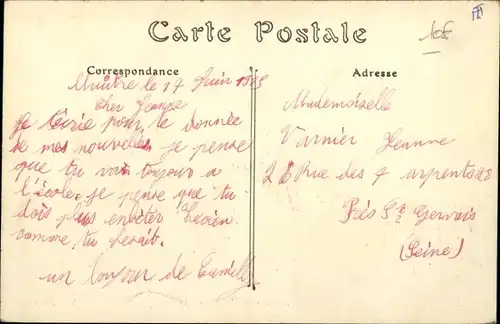 Carte Postale
Correspondance
Adresse
le 17 Juin
Cher Jeanne
Je pour te donnée
de mes nouvelles je pense
que tu vai toujour a
l'école je pense que tu
dois plus Lucien
comme tu
un bonjour de Camille
Mademoiselle
Varnier Jeanne
Rue des 7 arpents
Prés St Gervais
(Seine)